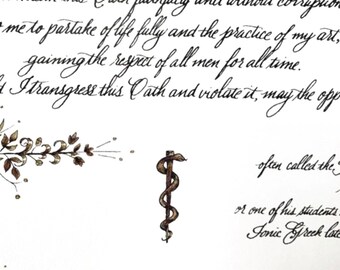 this Oath faithfully and without corruption
to me to partake of life fully and the practice of my art,
gaining the respect of all men for all time.
I transgress this Oath and violate it, may the opp
often called the
or one of his students
Ionic Greek late